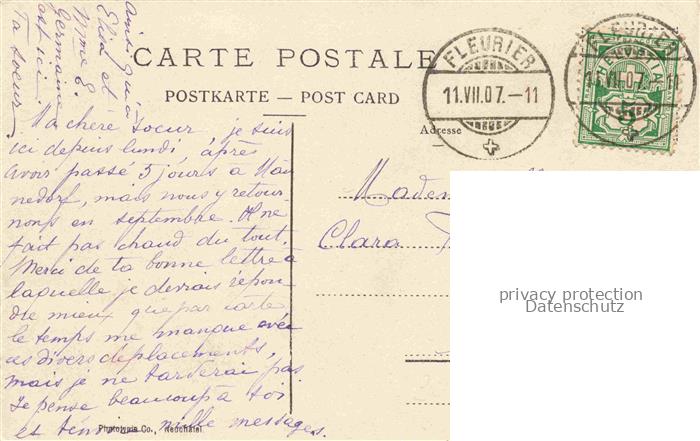 CARTE POSTALE
POSTKARTE — POST CARD
Adresse
FLEURIER
11.VII.07.–11
FLEURIER
11.VII.07.
HELVETIA
5
Ma chère soeur, je suis
ici depuis lundi, après
avoir passé 5 jours à Män
nedorf, mais nous y retour-
nons en septembre. Il ne
fait pas chaud du tout.
Merci de ta bonne lettre à
laquelle je devrais répon
dre mieux que par carte
le temps me manque avec
ces divers déplacements,
mais je ne tarderai pas.
Je pense beaucoup à toi
et mille messages.
ainsi qu'à
Elisa et
Mme E.
Germaine
est ici
Ta soeur
Madem
Clara
Phototypie Co., Neuchâtel
privacy protection
Datenschutz